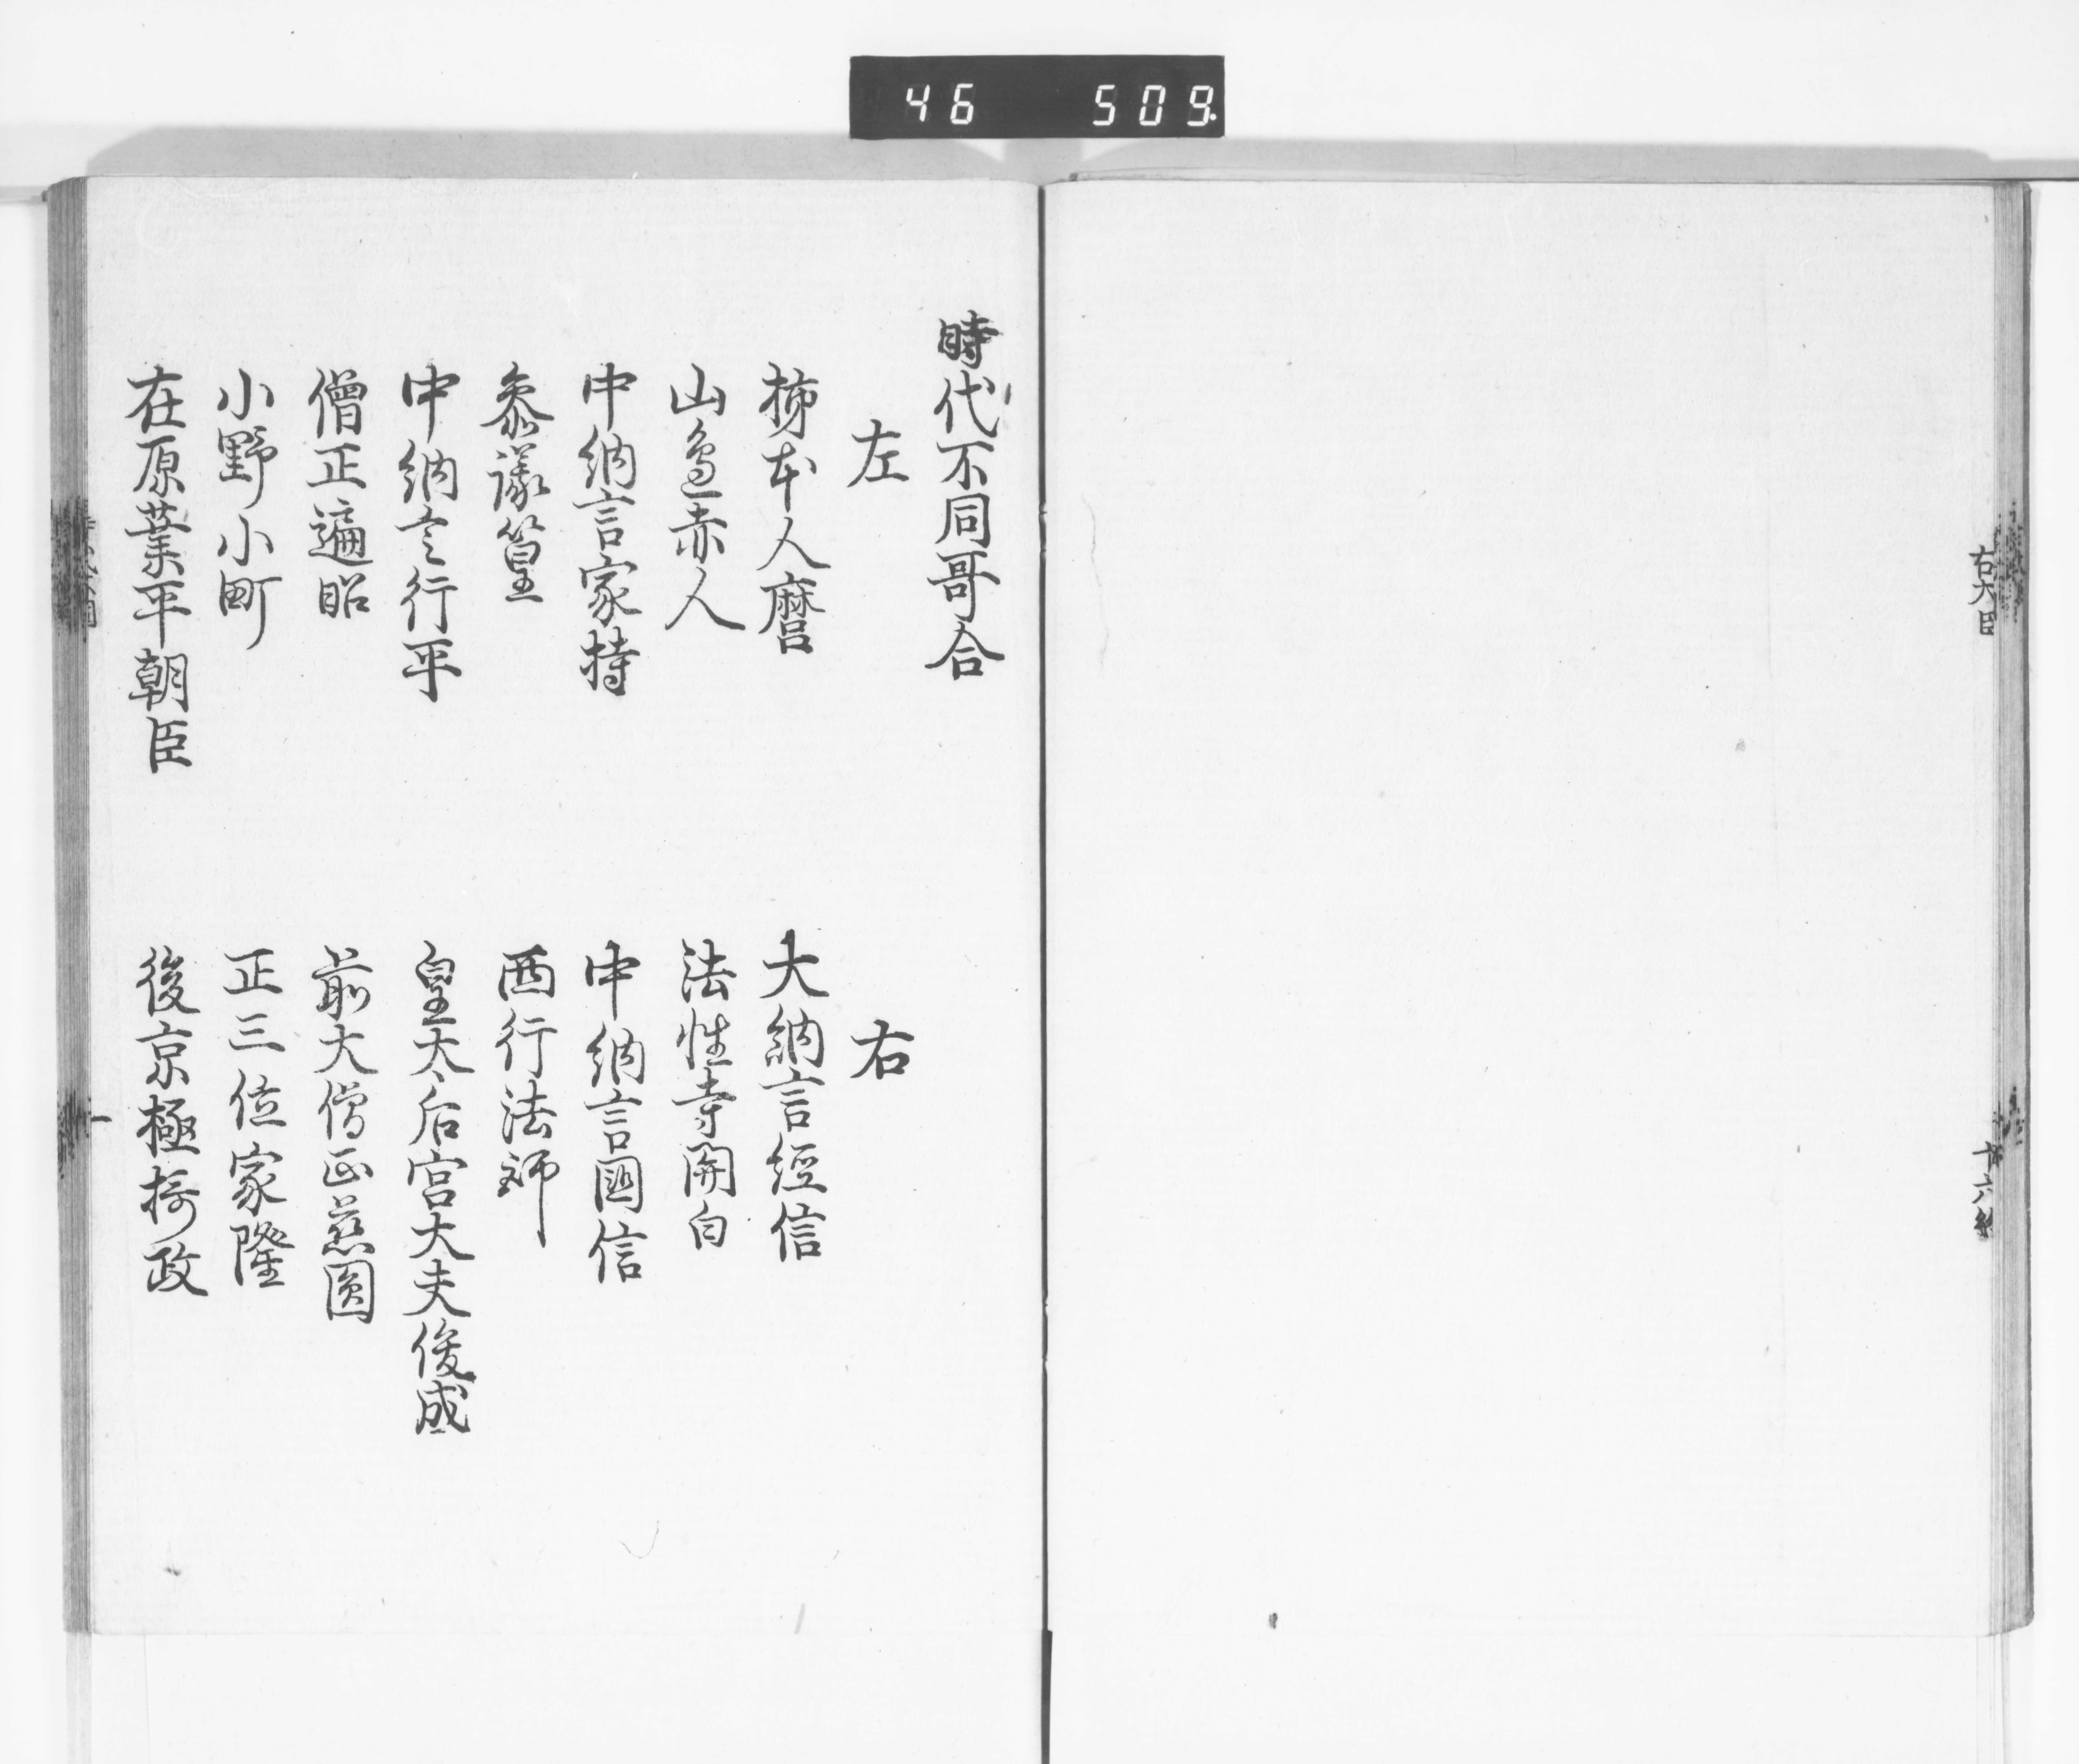 46 509
右大臣
十六終
時代不同哥合
左
右
柿本人麿
大納言経信
山邊赤人
法性寺関白
中納言家持
中納言國信
参議篁
西行法師
中納言行平
皇太后宮大夫俊成
僧正遍昭
前大僧正慈圓
小野小町
正三位家隆
在原業平朝臣
後京極摂政
一